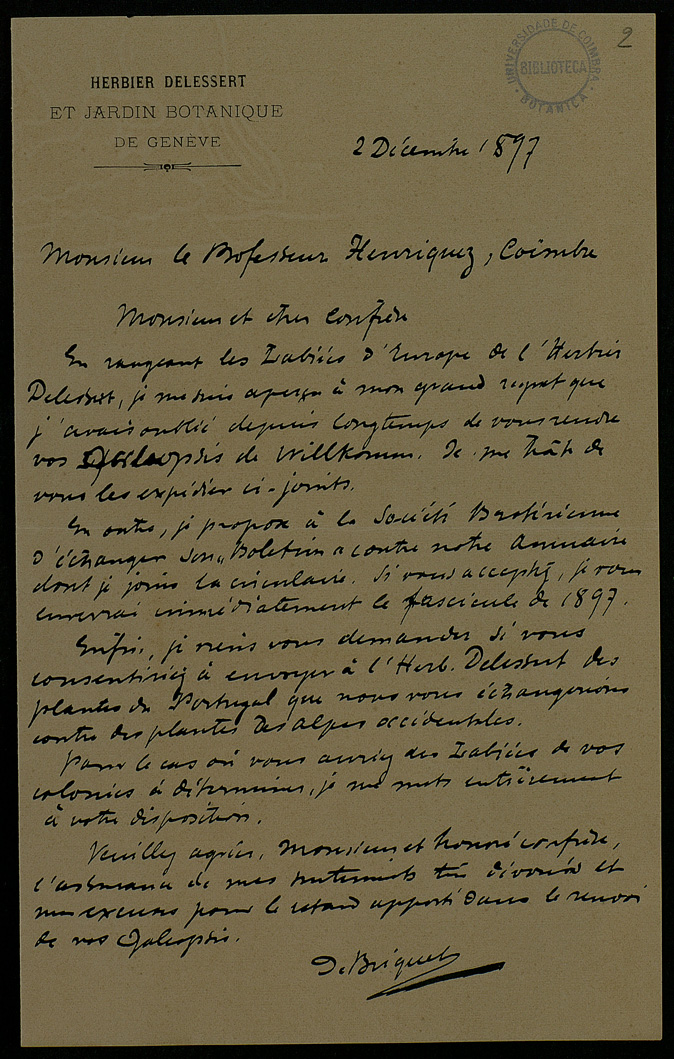 2
UNIVERSIDADE DE COIMBRA
BIBLIOTECA
BOTANICA
HERBIER DELESSERT
ET JARDIN BOTANIQUE
DE GENÈVE
2 Décembre 1897
Monsieur le Professeur Henriquez, Coïmbre
Monsieur et cher Confrère
En rangeant les Labiées d'Europe de l'Herbier
Delessert, je me suis aperçu à mon grand regret que
j'avais oublié depuis longtemps de vous rendre
vos Galeopsis de Willkomm. Je me hâte de
vous les expédier ci-joints.
En outre, je propose à la Société Brotérienne
d'échanger son „Boletim" contre notre Annuaire
dont je joins la circulaire. Si vous acceptez, je vous
enverrai immédiatement le fascicule de 1897.
Enfin, je viens vous demander si vous
consentiriez à envoyer à l'Herb. Delessert des
plantes du Portugal que nous vous échangerions
contre des plantes des Alpes occidentales.
Pour le cas où vous auriez des Labiées de vos
colonies à déterminer, je me mets entièrement
à votre disposition.
Veuillez agréer, Monsieur et honoré confrère,
l'assurance de mes sentiments très dévoués et
mes excuses pour le retard apporté dans le renvoi
de vos Galeopsis.
Dr Briquet